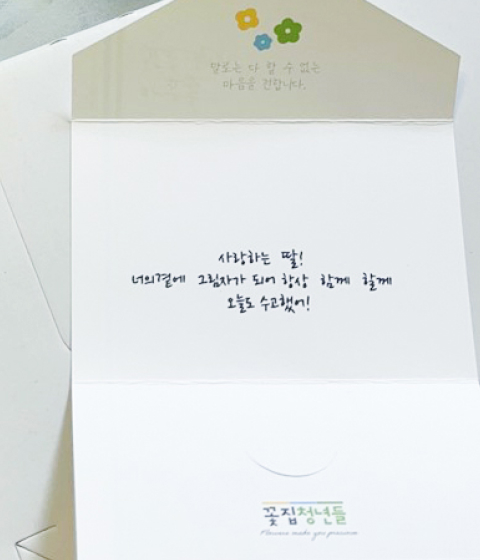 말로는 다 할 수 없는
마음을 전합니다.
사랑하는 딸!
너의곁에 그림자가 되어 항상 함께 할께
오늘도 수고했어!
꽃집청년들
Flowers make you precious